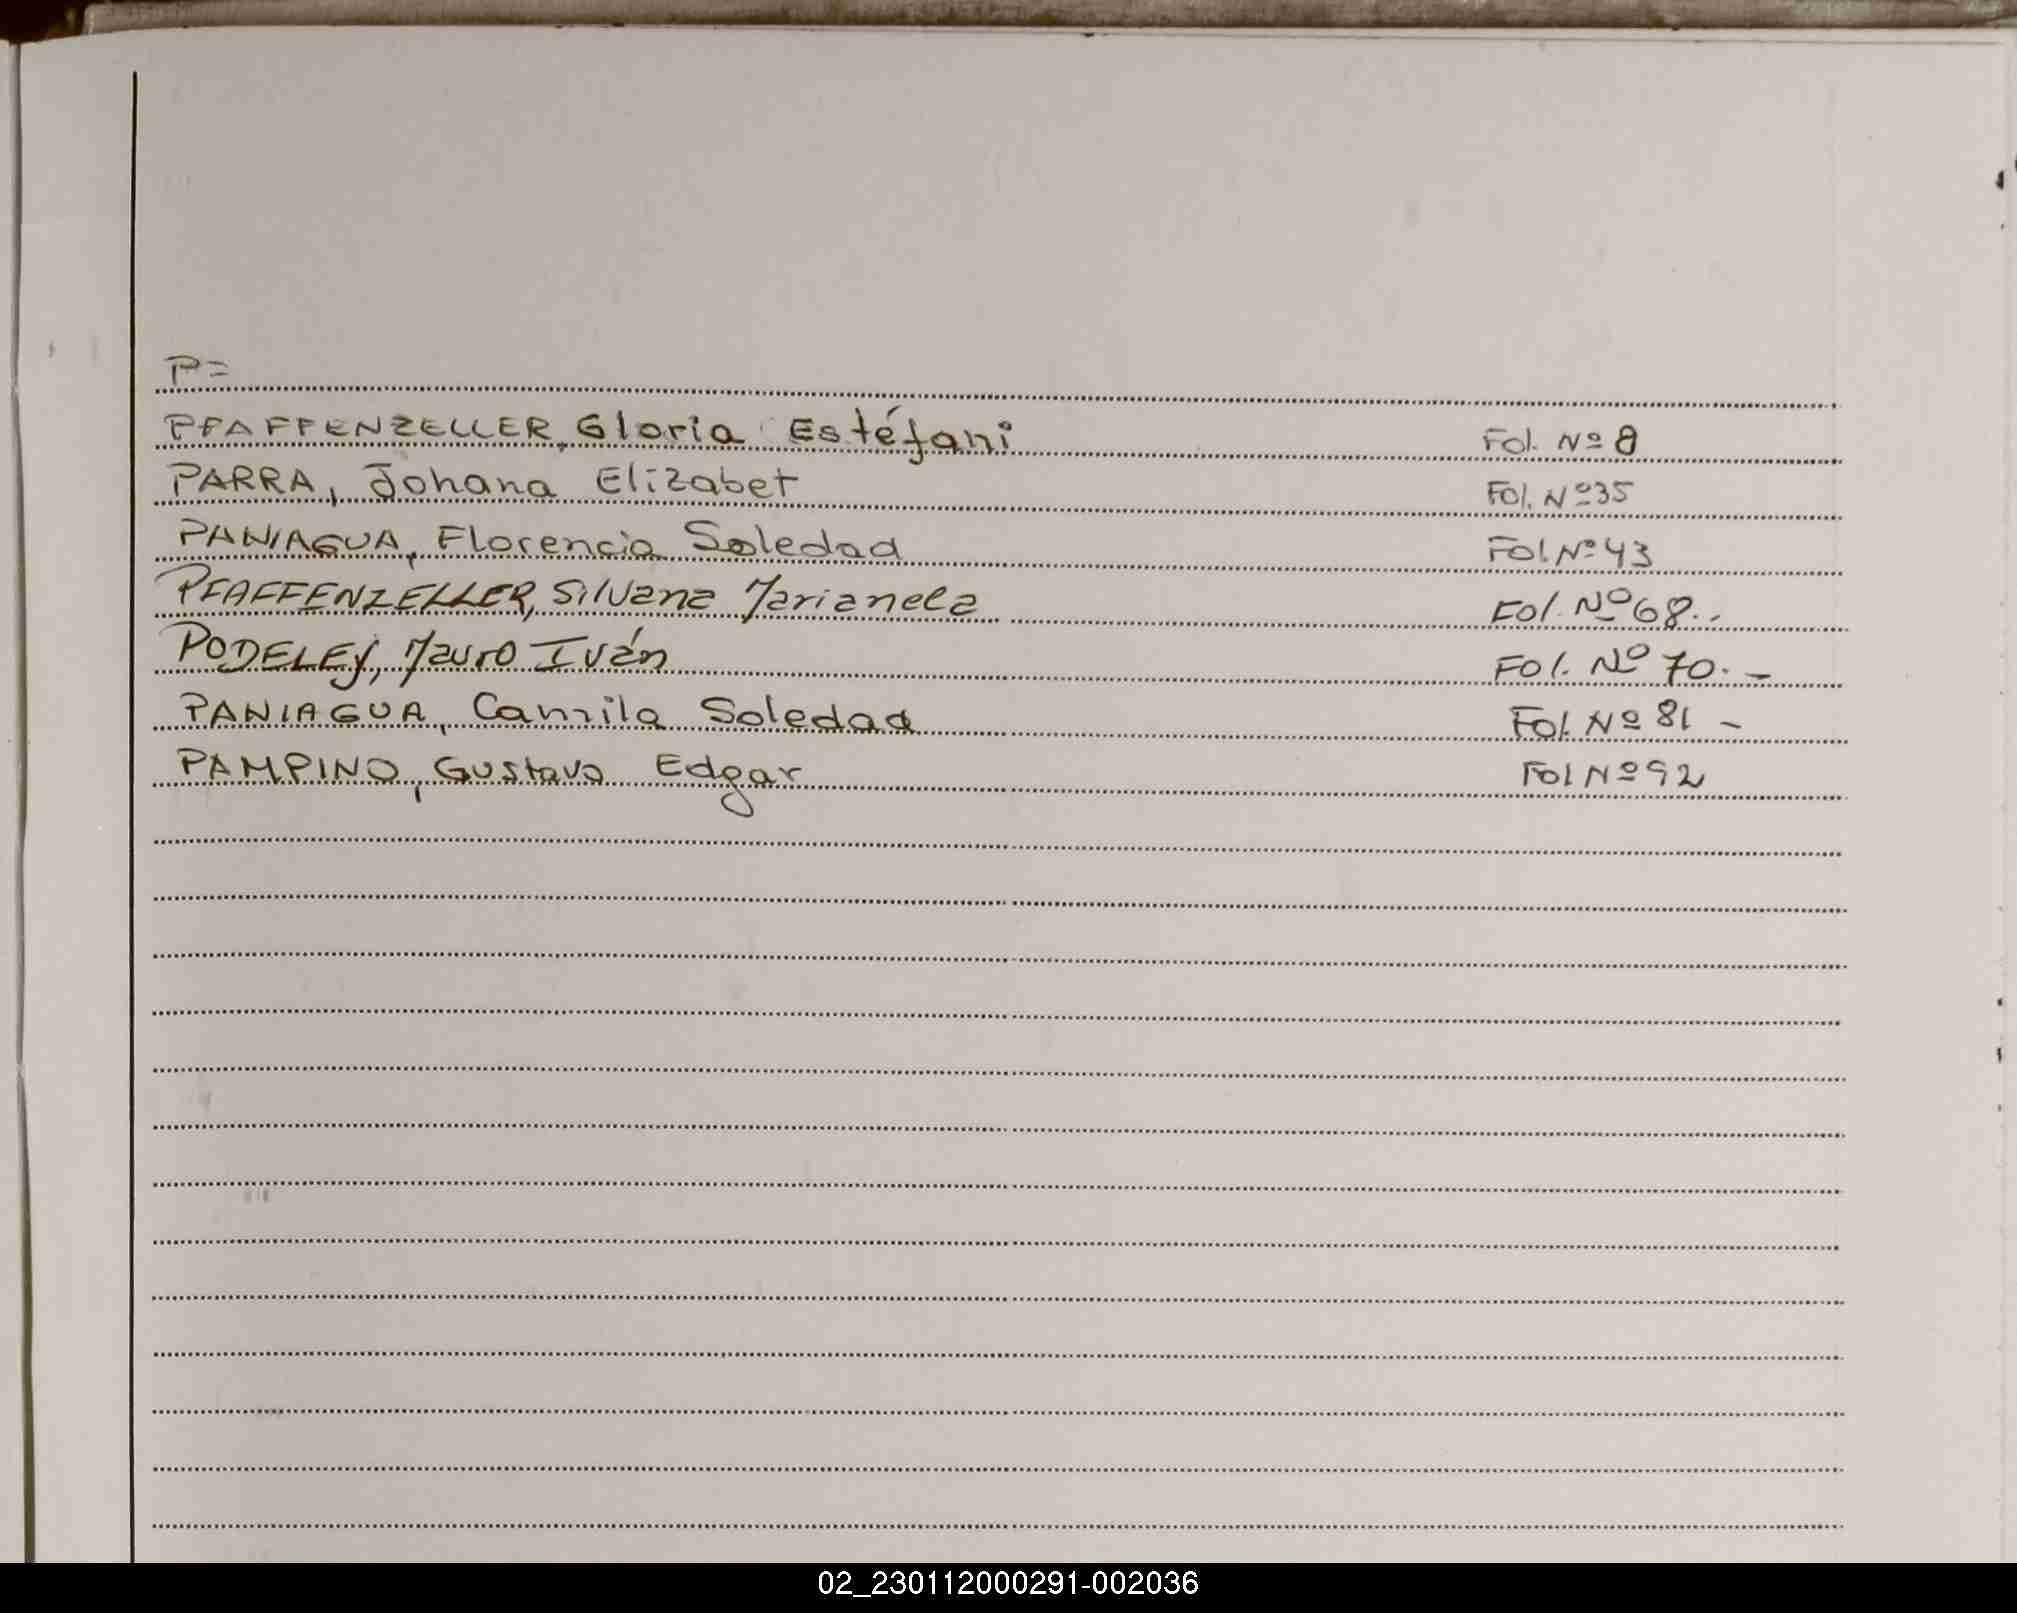 P=
PFAFFENZELLER, Gloria Estéfani Fol. Nº 8
PARRA, Johana Elizabet Fol. Nº 35
PANIAGUA, Florencia Soledad Fol Nº 43
PFAFFENZELLER, Silvana Marianela Fol. Nº 68.-
PODELEY, Mauro Iván Fol. Nº 70.-
PANIAGUA, Camila Soledad Fol. Nº 81 -
PAMPINO, Gustavo Edgar Fol Nº 92
02_230112000291-002036